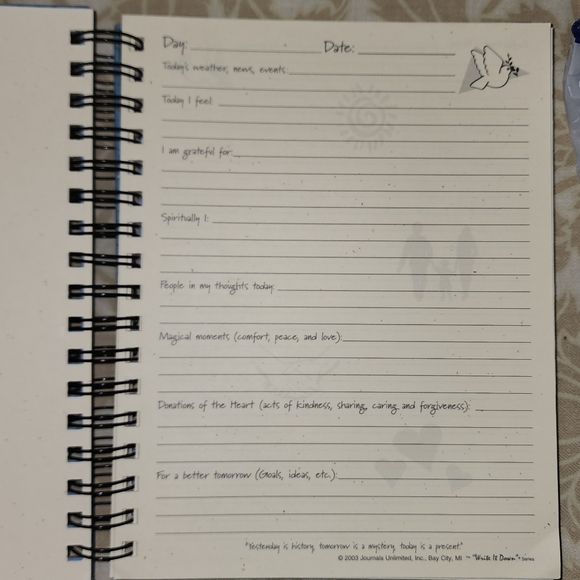 Day: Date:
Today's weather, news, events:
Today I feel:
I am grateful for:
Spiritually I:
People in my thoughts today:
Magical moments (comfort, peace, and love):
Donations of the Heart (acts of kindness, sharing, caring and forgiveness):
For a better tomorrow (Goals, ideas, etc.):
"Yesterday is history, tomorrow is a mystery, today is a present."
© 2003 Journals Unlimited, Inc., Bay City, MI ~ "Write It Down" Series